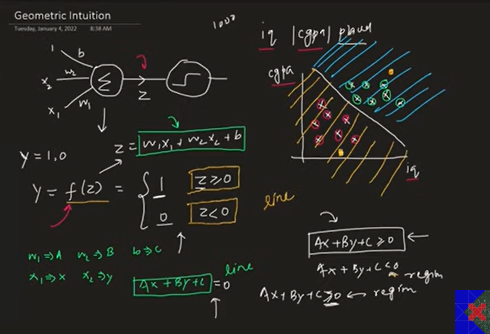 Geometric Intuition
Tuesday, January 4, 2022 8:38 AM
1000
iq | cgpa | placed
1 b
x2 w2 Σ
x1 w1
z
cgpa
iq
z = w1x1 + w2x2 + b
Y = 1,0
Y = f(z) = { 1 z≥0
0 z<0
line
w1 ⇒ A w2 ⇒ B b ⇒ C
x1 ⇒ x x2 ⇒ y
Ax + By + C = 0 line
Ax + By + C ≥ 0
Ax + By + C < 0
region
Ax + By + C ≥ 0 ← region